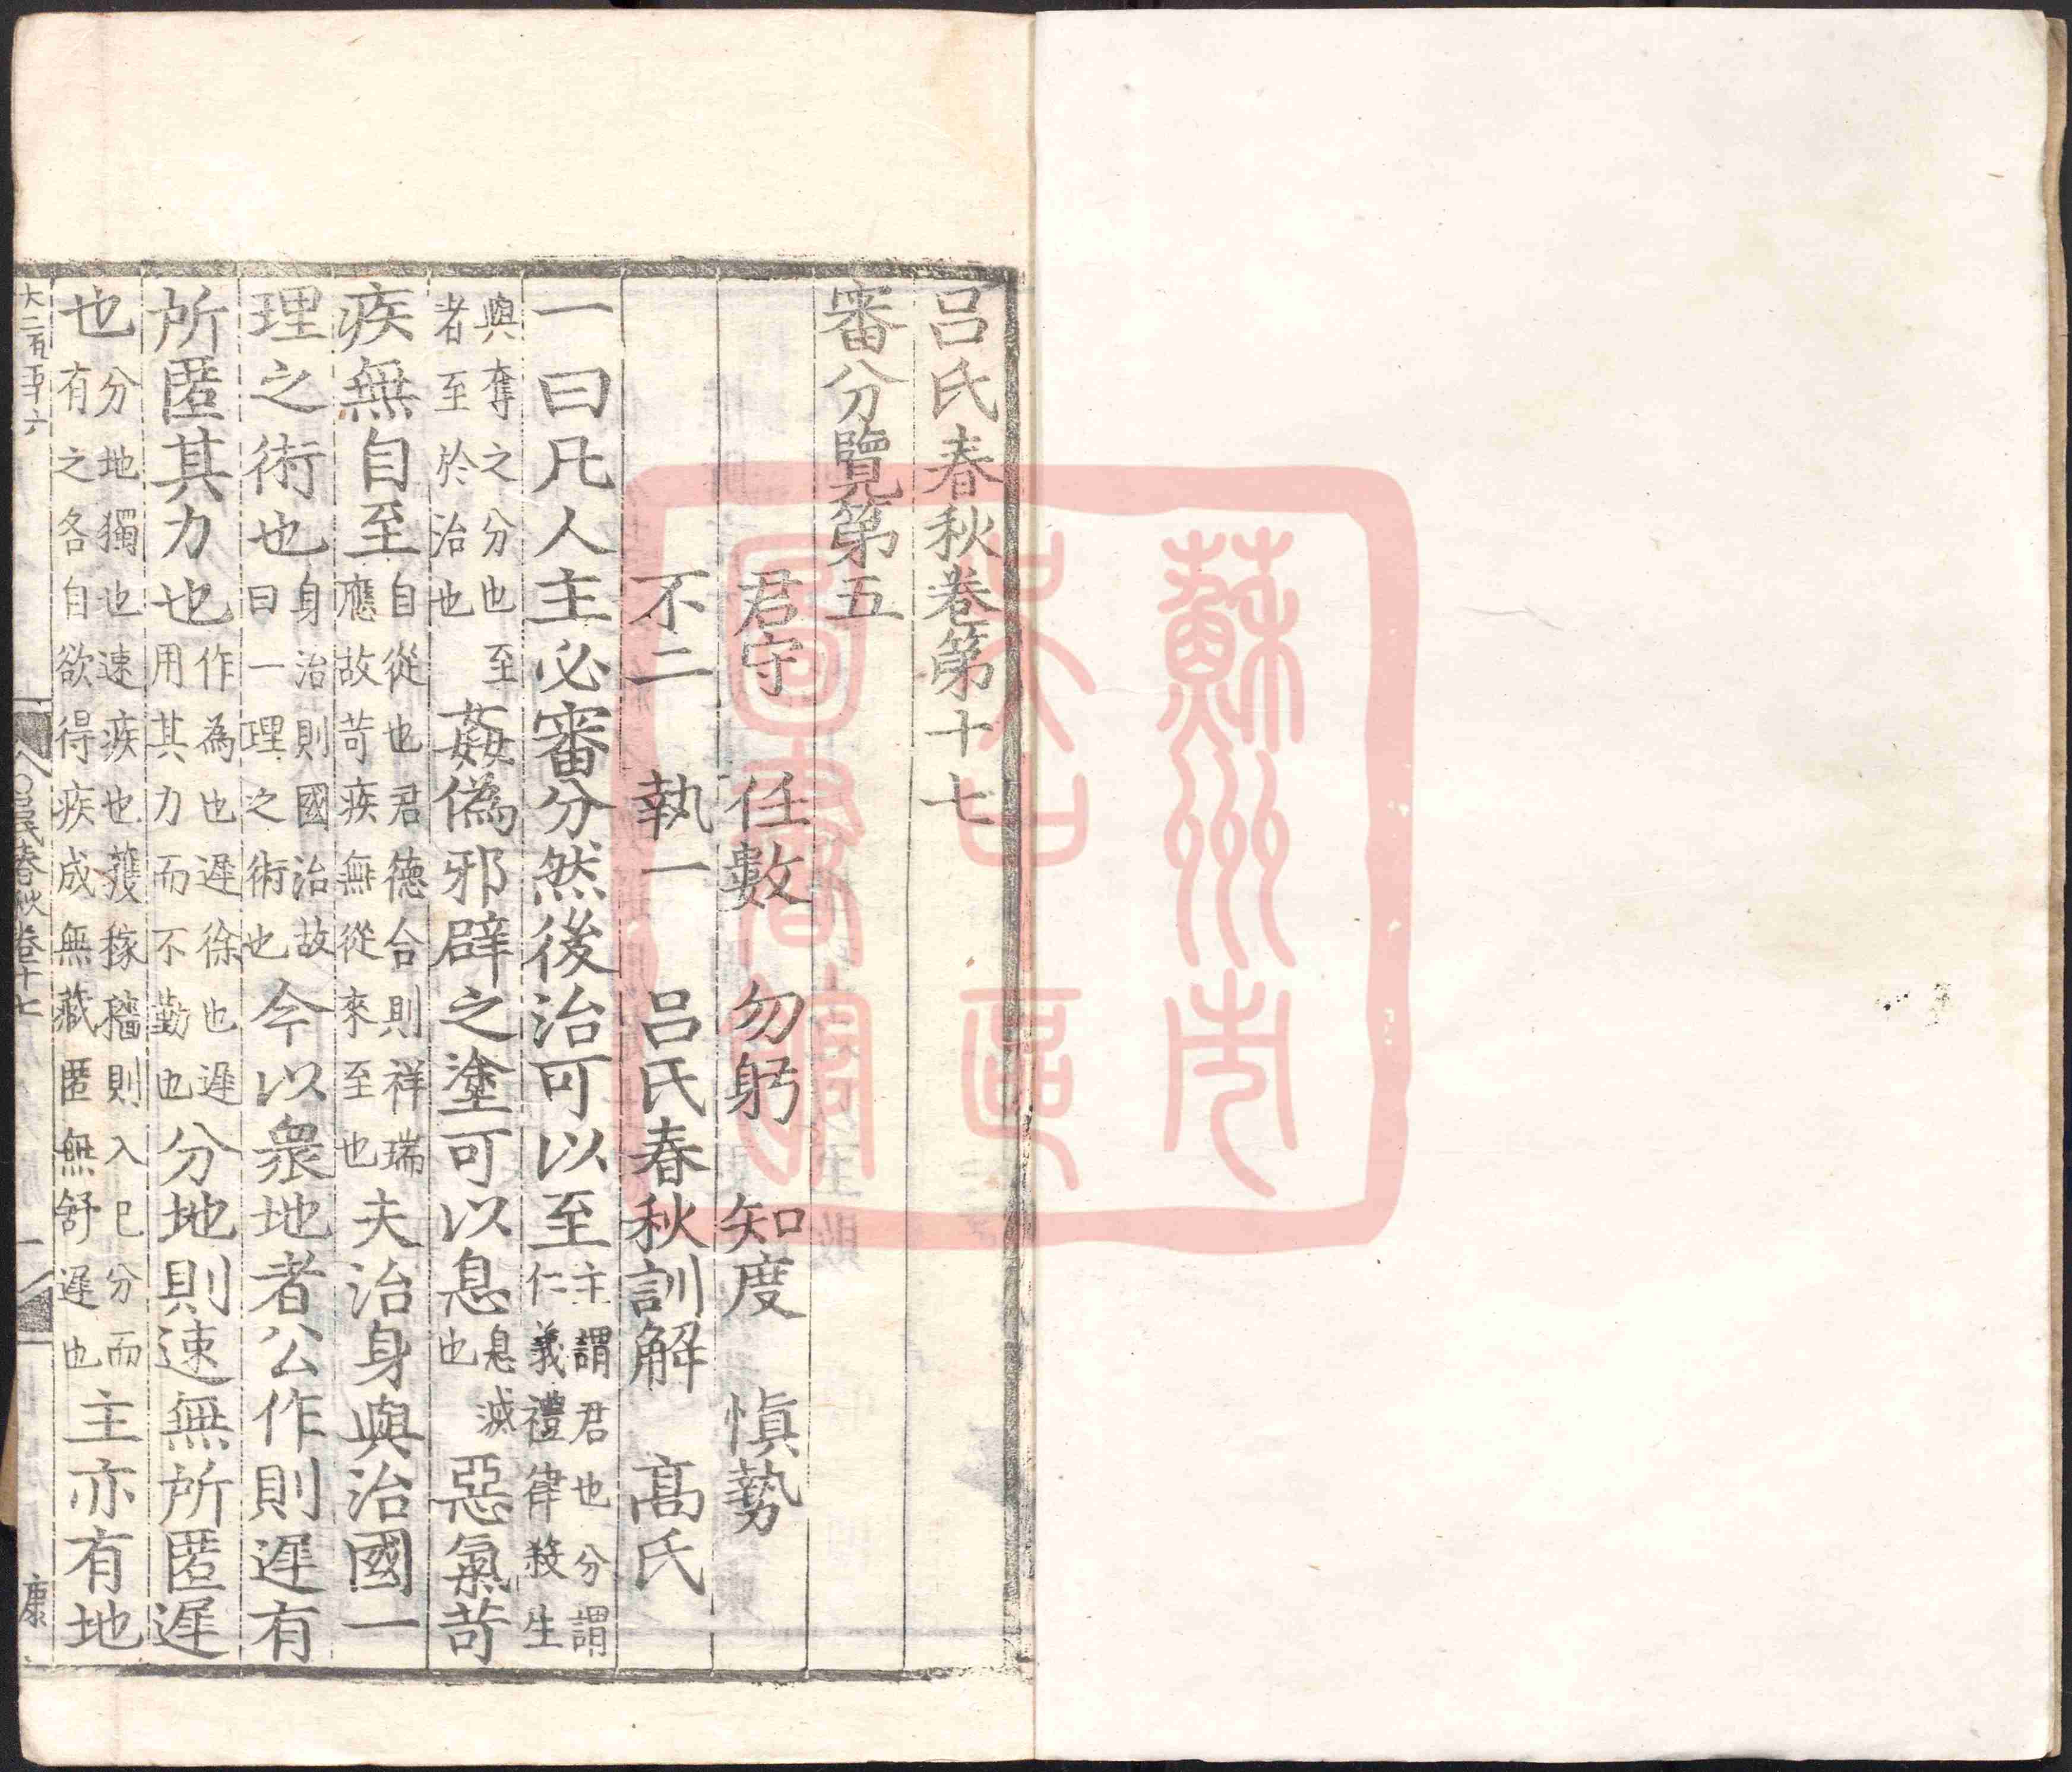 吕氏春秋卷第十七
審分覽第五
君守 任數 勿躬 知度 慎勢
不二 執一 吕氏春秋訓解 高氏
一曰凡人主必審分然後治可以至主謂君也分謂仁義禮律殺生
與奪之分也至者至於治也姦偽邪辟之塗可以息息滅也惡氣苛
疾無自至自從也君德合則祥瑞應故苛疾無從來至也夫治身與治國一
理之術也身治則國治故曰一理之術也今以衆地者公作則遲有
所匿其力也作為也遲徐也遲用其力而不勤也分地則速無所匿遲
也分地獨也速疾也穫稼穡則入己分而有之各自欲得疾成無藏匿無舒遲也主亦有地
吕氏春秋卷十七
一
康
蘇州市
文山區
圖書館